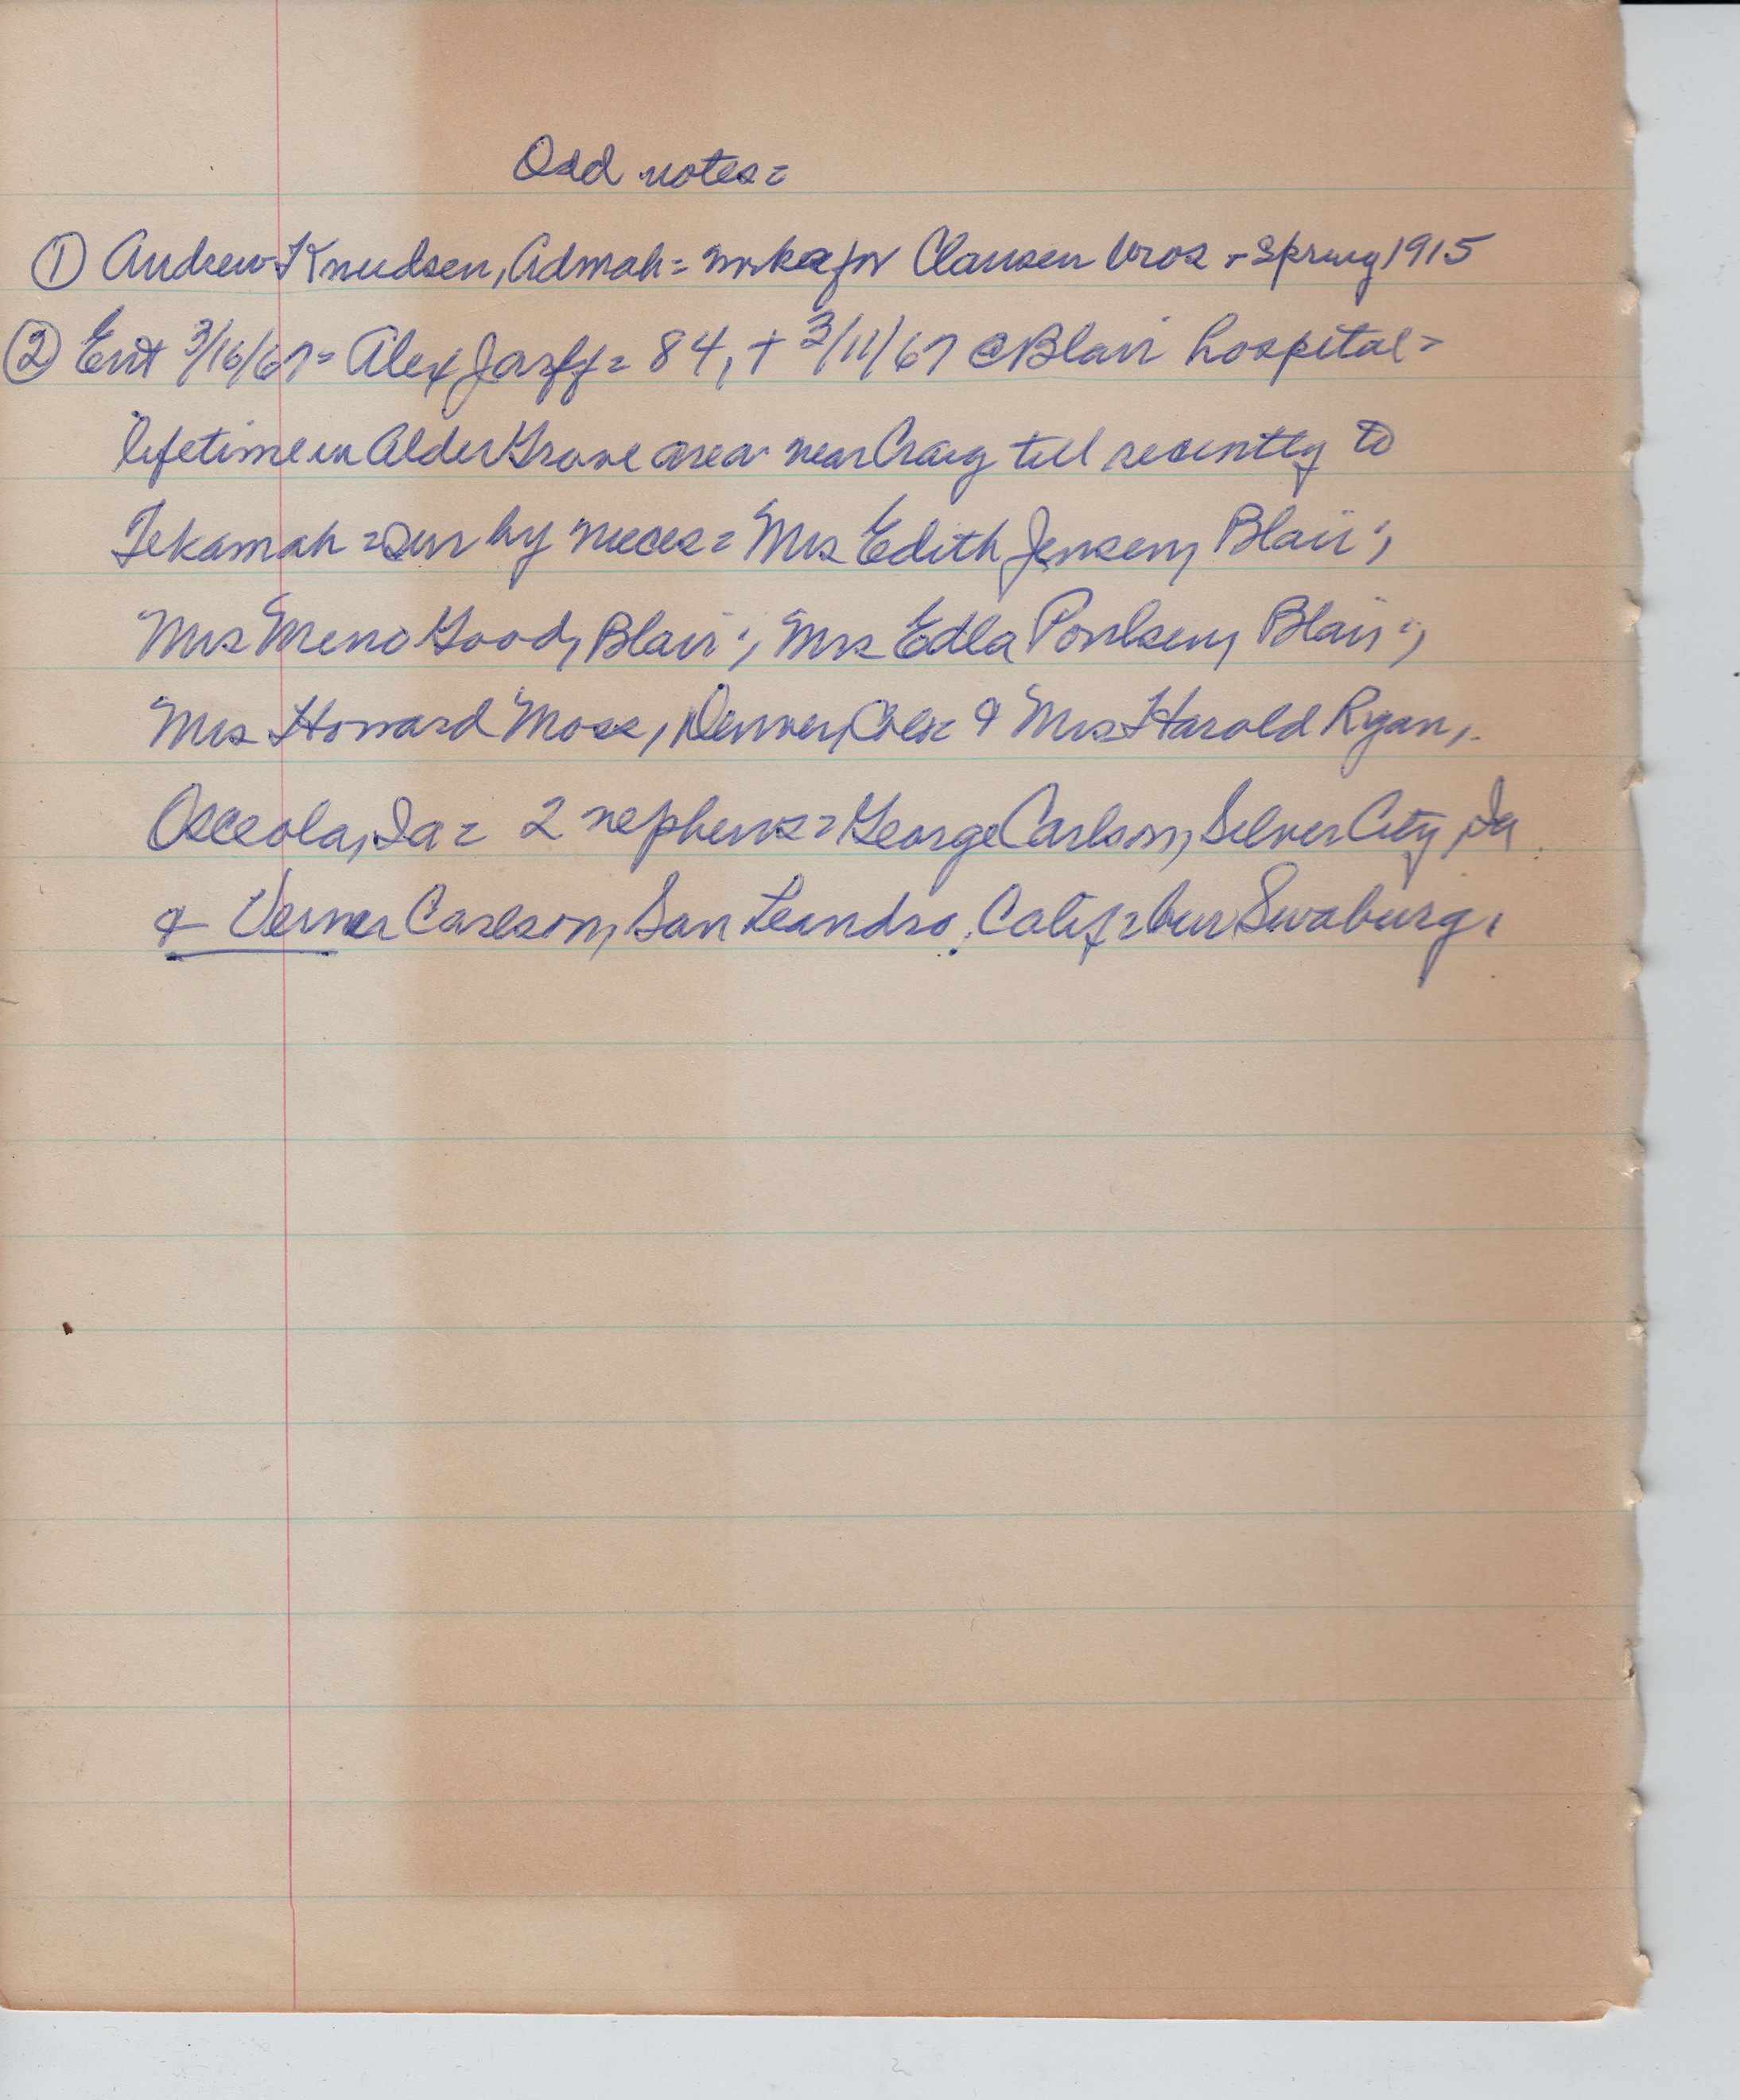 Odd notes=
① Andrew Knudsen, Admah= works for Clausen bros - Spring 1915
② Ent 3/16/67= Alex = 84, + 3/11/67 @ Blair hospital=
lifetime in Alder Grove area near Craig till recently to
Tekamah = sur by nieces= Mrs Edith Jensen, Blair;
Mrs Meno Good, Blair; Mrs Edla Poulsen, Blair;
Mrs Howard Moss, Denver, Colo & Mrs Harold Ryan,
Osceola, Ia= 2 nephews= George Carlson, Silver City, Ia
& Verner Carlson, San Leandro, Calif= bur Swaburg.